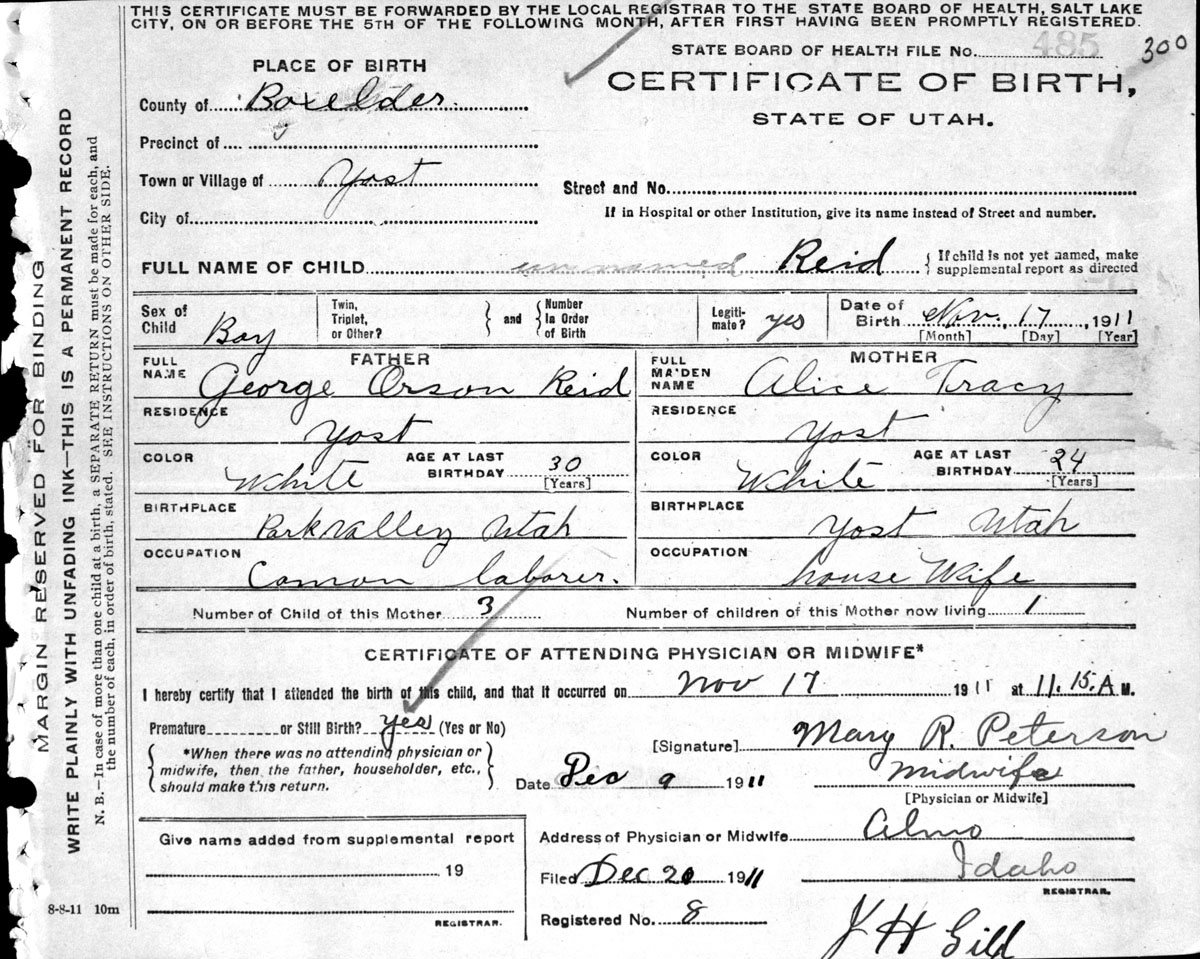 THIS CERTIFICATE MUST BE FORWARDED BY THE LOCAL REGISTRAR TO THE STATE BOARD OF HEALTH, SALT LAKE
CITY, ON OR BEFORE THE 5TH OF THE FOLLOWING MONTH, AFTER FIRST HAVING BEEN PROMPTLY REGISTERED.
STATE BOARD OF HEALTH FILE No. 485
300
PLACE OF BIRTH
CERTIFICATE OF BIRTH,
STATE OF UTAH.
County of Boxelder.
Precinct of
Town or Village of Yost
Street and No.
City of
If in Hospital or other Institution, give its name instead of Street and number.
FULL NAME OF CHILD unnamed Reid { If child is not yet named, make
supplemental report as directed
Sex of Child Boy
Twin, Triplet, or Other? } and { Number In Order of Birth
Legiti-mate? yes
Date of Birth Nov. 17, 1911
[Month] [Day] [Year]
FATHER
FULL NAME George Orson Reid
RESIDENCE Yost
COLOR White AGE AT LAST BIRTHDAY 30 [Years]
BIRTHPLACE Parkvalley Utah
OCCUPATION Comon laborer.
MOTHER
FULL MAIDEN NAME Alice Tracy
RESIDENCE Yost
COLOR White AGE AT LAST BIRTHDAY 24 [Years]
BIRTHPLACE Yost Utah
OCCUPATION house Wife
Number of Child of this Mother 3 Number of children of this Mother now living 1
CERTIFICATE OF ATTENDING PHYSICIAN OR MIDWIFE*
I hereby certify that I attended the birth of this child, and that it occurred on Nov 17 1911 at 11.15.A M.
Premature or Still Birth? yes (Yes or No)
*When there was no attending physician or
midwife, then the father, householder, etc.,
should make this return.
[Signature] Mary R. Peterson
Date Dec 9 1911 Midwife
[Physician or Midwife]
Give name added from supplemental report
19
REGISTRAR.
Address of Physician or Midwife Almo
Idaho
Filed Dec 20 1911
REGISTRAR.
Registered No. 8
J H Gild
8-8-11 10m
MARGIN RESERVED FOR BINDING
WRITE PLAINLY WITH UNFADING INK—THIS IS A PERMANENT RECORD
N. B.—In case of more than one child at a birth, a SEPARATE RETURN must be made for each, and
the number of each, in order of birth, stated. SEE INSTRUCTIONS ON OTHER SIDE.